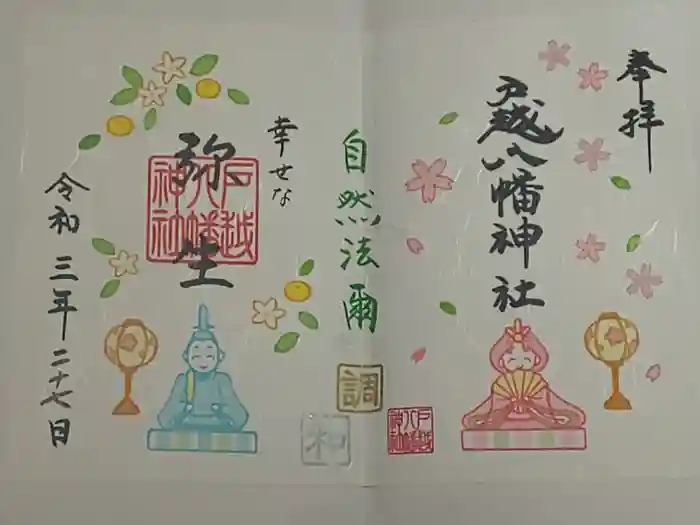 奉拝
戸越八幡神社
戸越
八幡
神社
自然法爾
調
和
幸せな
弥生
戸越
八幡
神社
令和三年二十七日